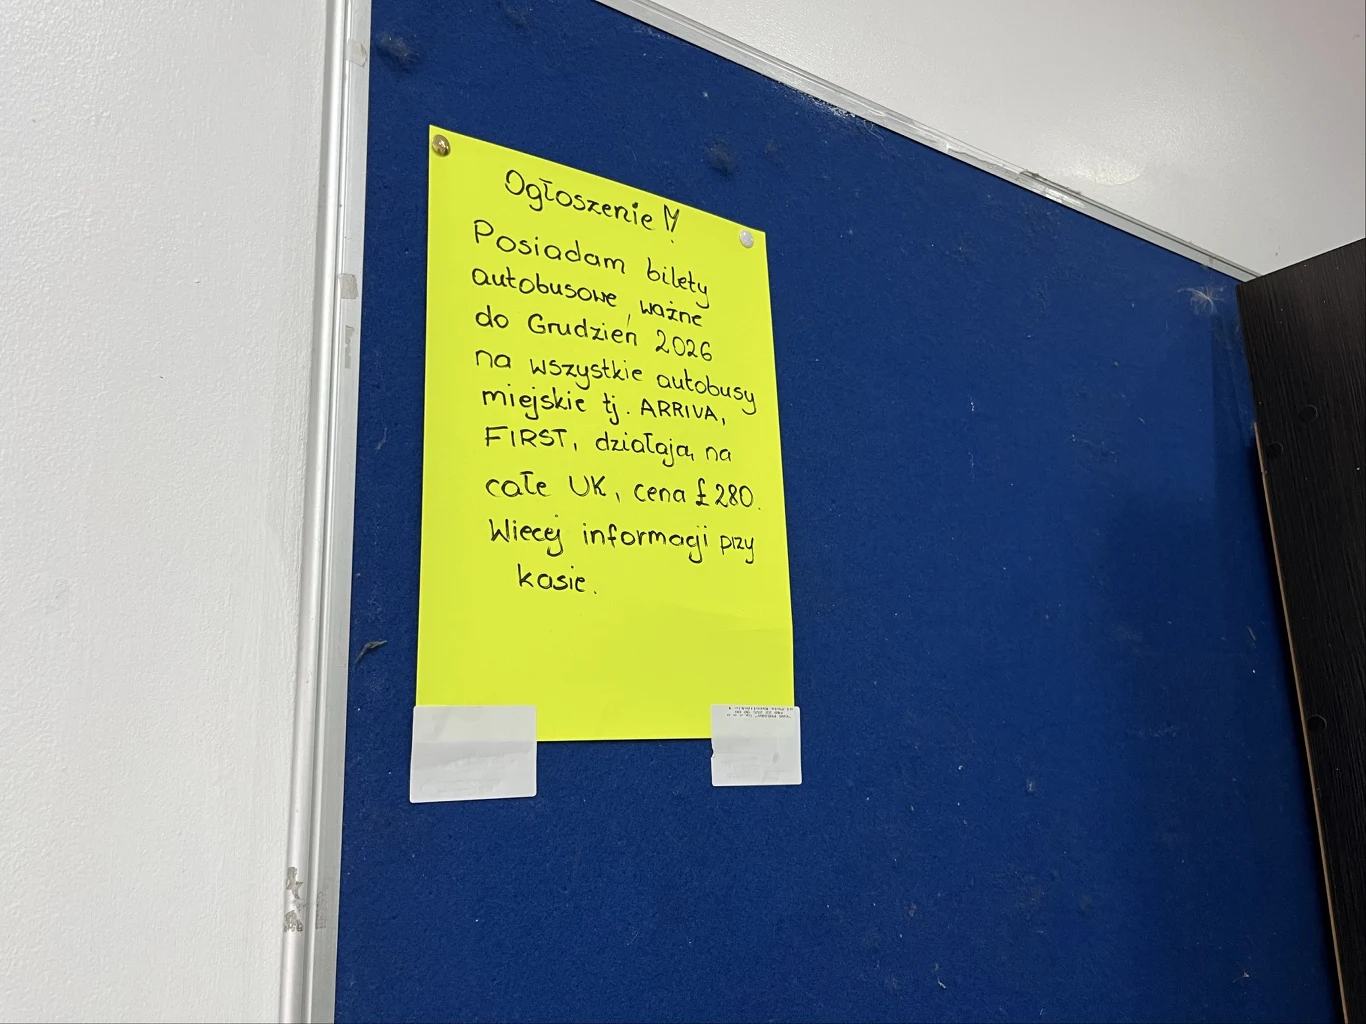 Ogłoszenie !
Posiadam bilety
autobusowe, ważne
do Grudzień 2026
na wszystkie autobusy
miejskie tj. ARRIVA,
FIRST, działają na
całe UK, cena £280.
Wiecej informacji przy
kasie.